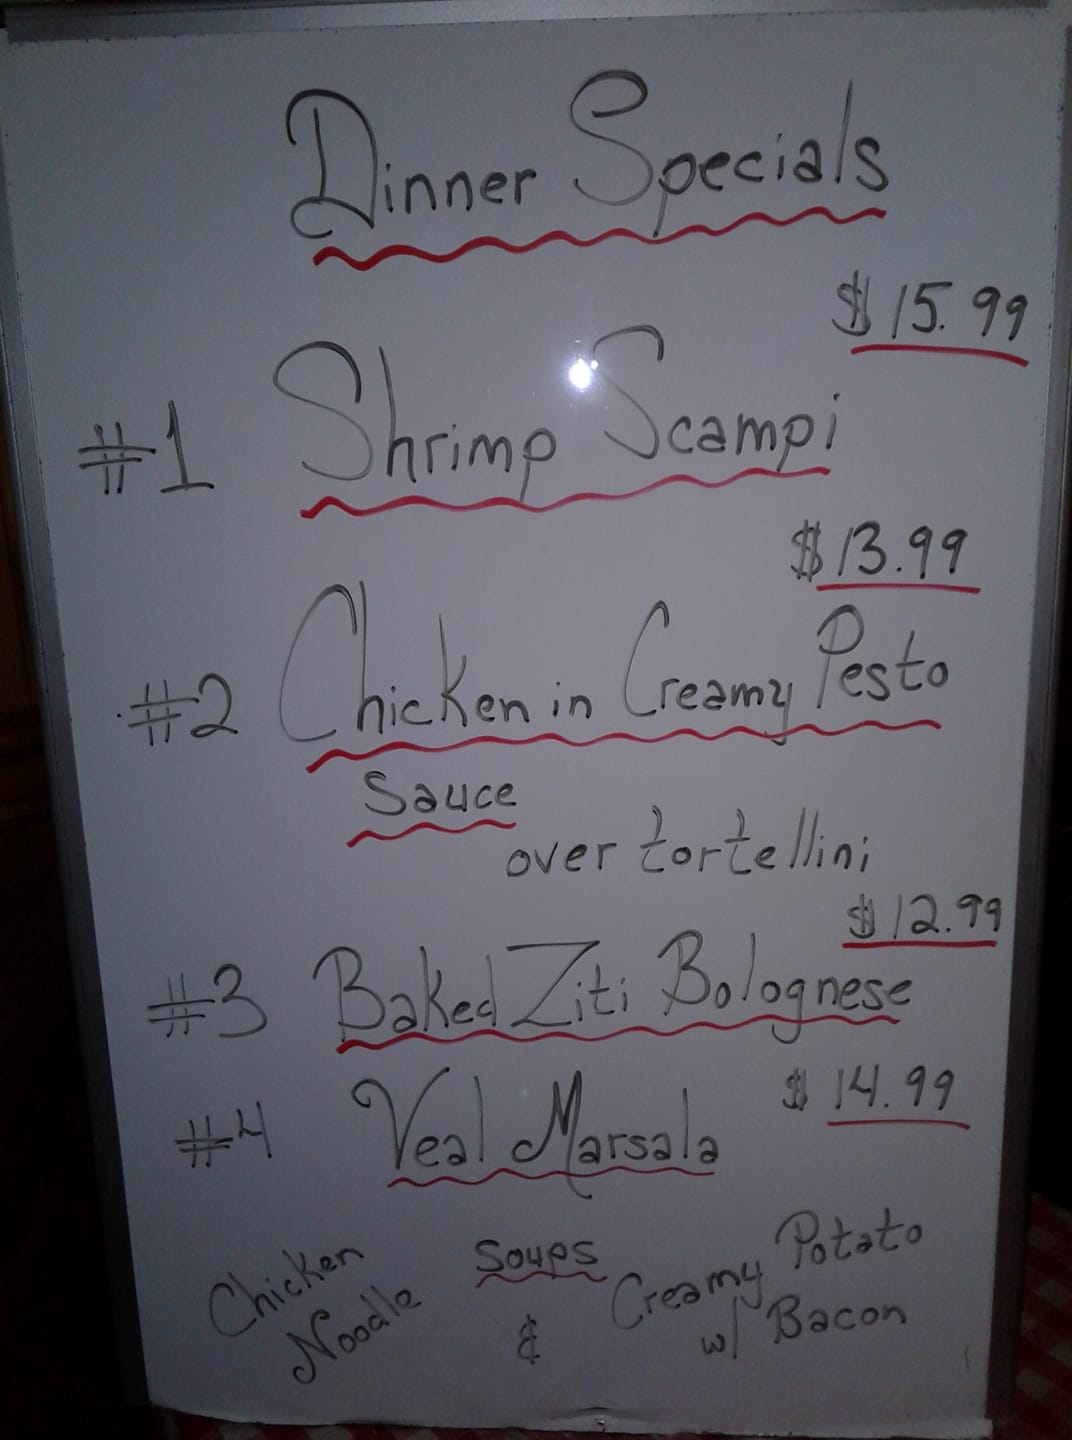 Dinner Specials
$15.99
#1 Shrimp Scampi
$13.99
#2 Chicken in Creamy Pesto
Sauce
over tortellini
$12.99
#3 Baked Ziti Bolognese
#4 Veal Marsala $14.99
Soups
Chicken
Noodle
&
Creamy Potato
w/ Bacon